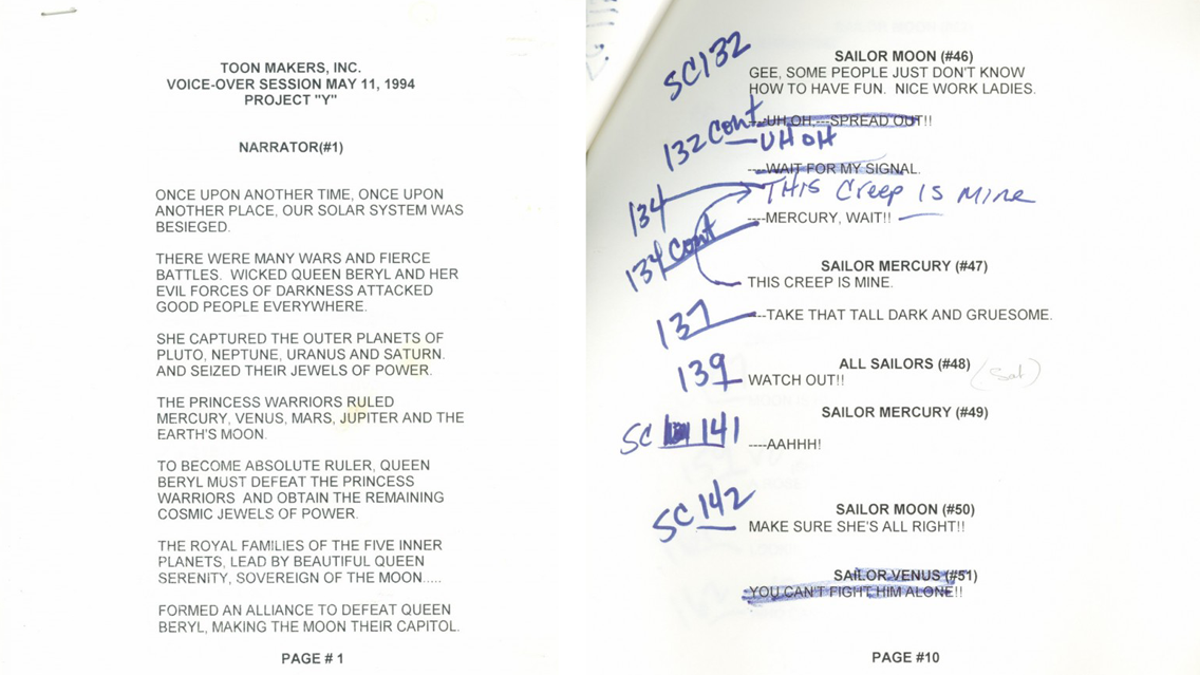 TOON MAKERS, INC.
VOICE-OVER SESSION MAY 11, 1994
PROJECT "Y"
NARRATOR(#1)
ONCE UPON ANOTHER TIME, ONCE UPON
ANOTHER PLACE, OUR SOLAR SYSTEM WAS
BESIEGED.
THERE WERE MANY WARS AND FIERCE
BATTLES. WICKED QUEEN BERYL AND HER
EVIL FORCES OF DARKNESS ATTACKED
GOOD PEOPLE EVERYWHERE.
SHE CAPTURED THE OUTER PLANETS OF
PLUTO, NEPTUNE, URANUS AND SATURN.
AND SEIZED THEIR JEWELS OF POWER.
THE PRINCESS WARRIORS RULED
MERCURY, VENUS, MARS, JUPITER AND THE
EARTH'S MOON.
TO BECOME ABSOLUTE RULER, QUEEN
BERYL MUST DEFEAT THE PRINCESS
WARRIORS AND OBTAIN THE REMAINING
COSMIC JEWELS OF POWER.
THE ROYAL FAMILIES OF THE FIVE INNER
PLANETS, LEAD BY BEAUTIFUL QUEEN
SERENITY, SOVEREIGN OF THE MOON.....
FORMED AN ALLIANCE TO DEFEAT QUEEN
BERYL, MAKING THE MOON THEIR CAPITOL.
PAGE # 1
SAILOR MOON (#46)
SC132
GEE, SOME PEOPLE JUST DON'T KNOW
HOW TO HAVE FUN. NICE WORK LADIES.
132 Cont
----UH,OH,---SPREAD OUT!!
UH OH
----WAIT FOR MY SIGNAL.
134
THIS Creep IS Mine
134 Cont
----MERCURY, WAIT!!
SAILOR MERCURY (#47)
THIS CREEP IS MINE.
137
----TAKE THAT TALL DARK AND GRUESOME.
ALL SAILORS (#48)
139
WATCH OUT!!
SAILOR MERCURY (#49)
SC 141
----AAHHH!
SAILOR MOON (#50)
SC 142
MAKE SURE SHE'S ALL RIGHT!!
SAILOR VENUS (#51)
YOU CAN'T FIGHT HIM ALONE!!
PAGE #10